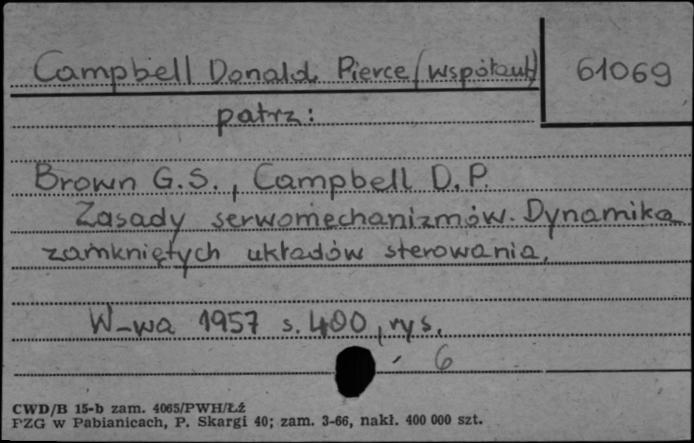 Campbell Donald Pierce (współaut)
61069
patrz:
Brown G.S., Campbell D.P.
Zasady serwomechanizmów. Dynamika
zamkniętych układów sterowania,
W-wa 1957 s. 400, rys.
6
CWD/B 15-b zam. 4065/PWH/Łź
PZG w Pabianicach, P. Skargi 40; zam. 3-66, nakł. 400 000 szt.